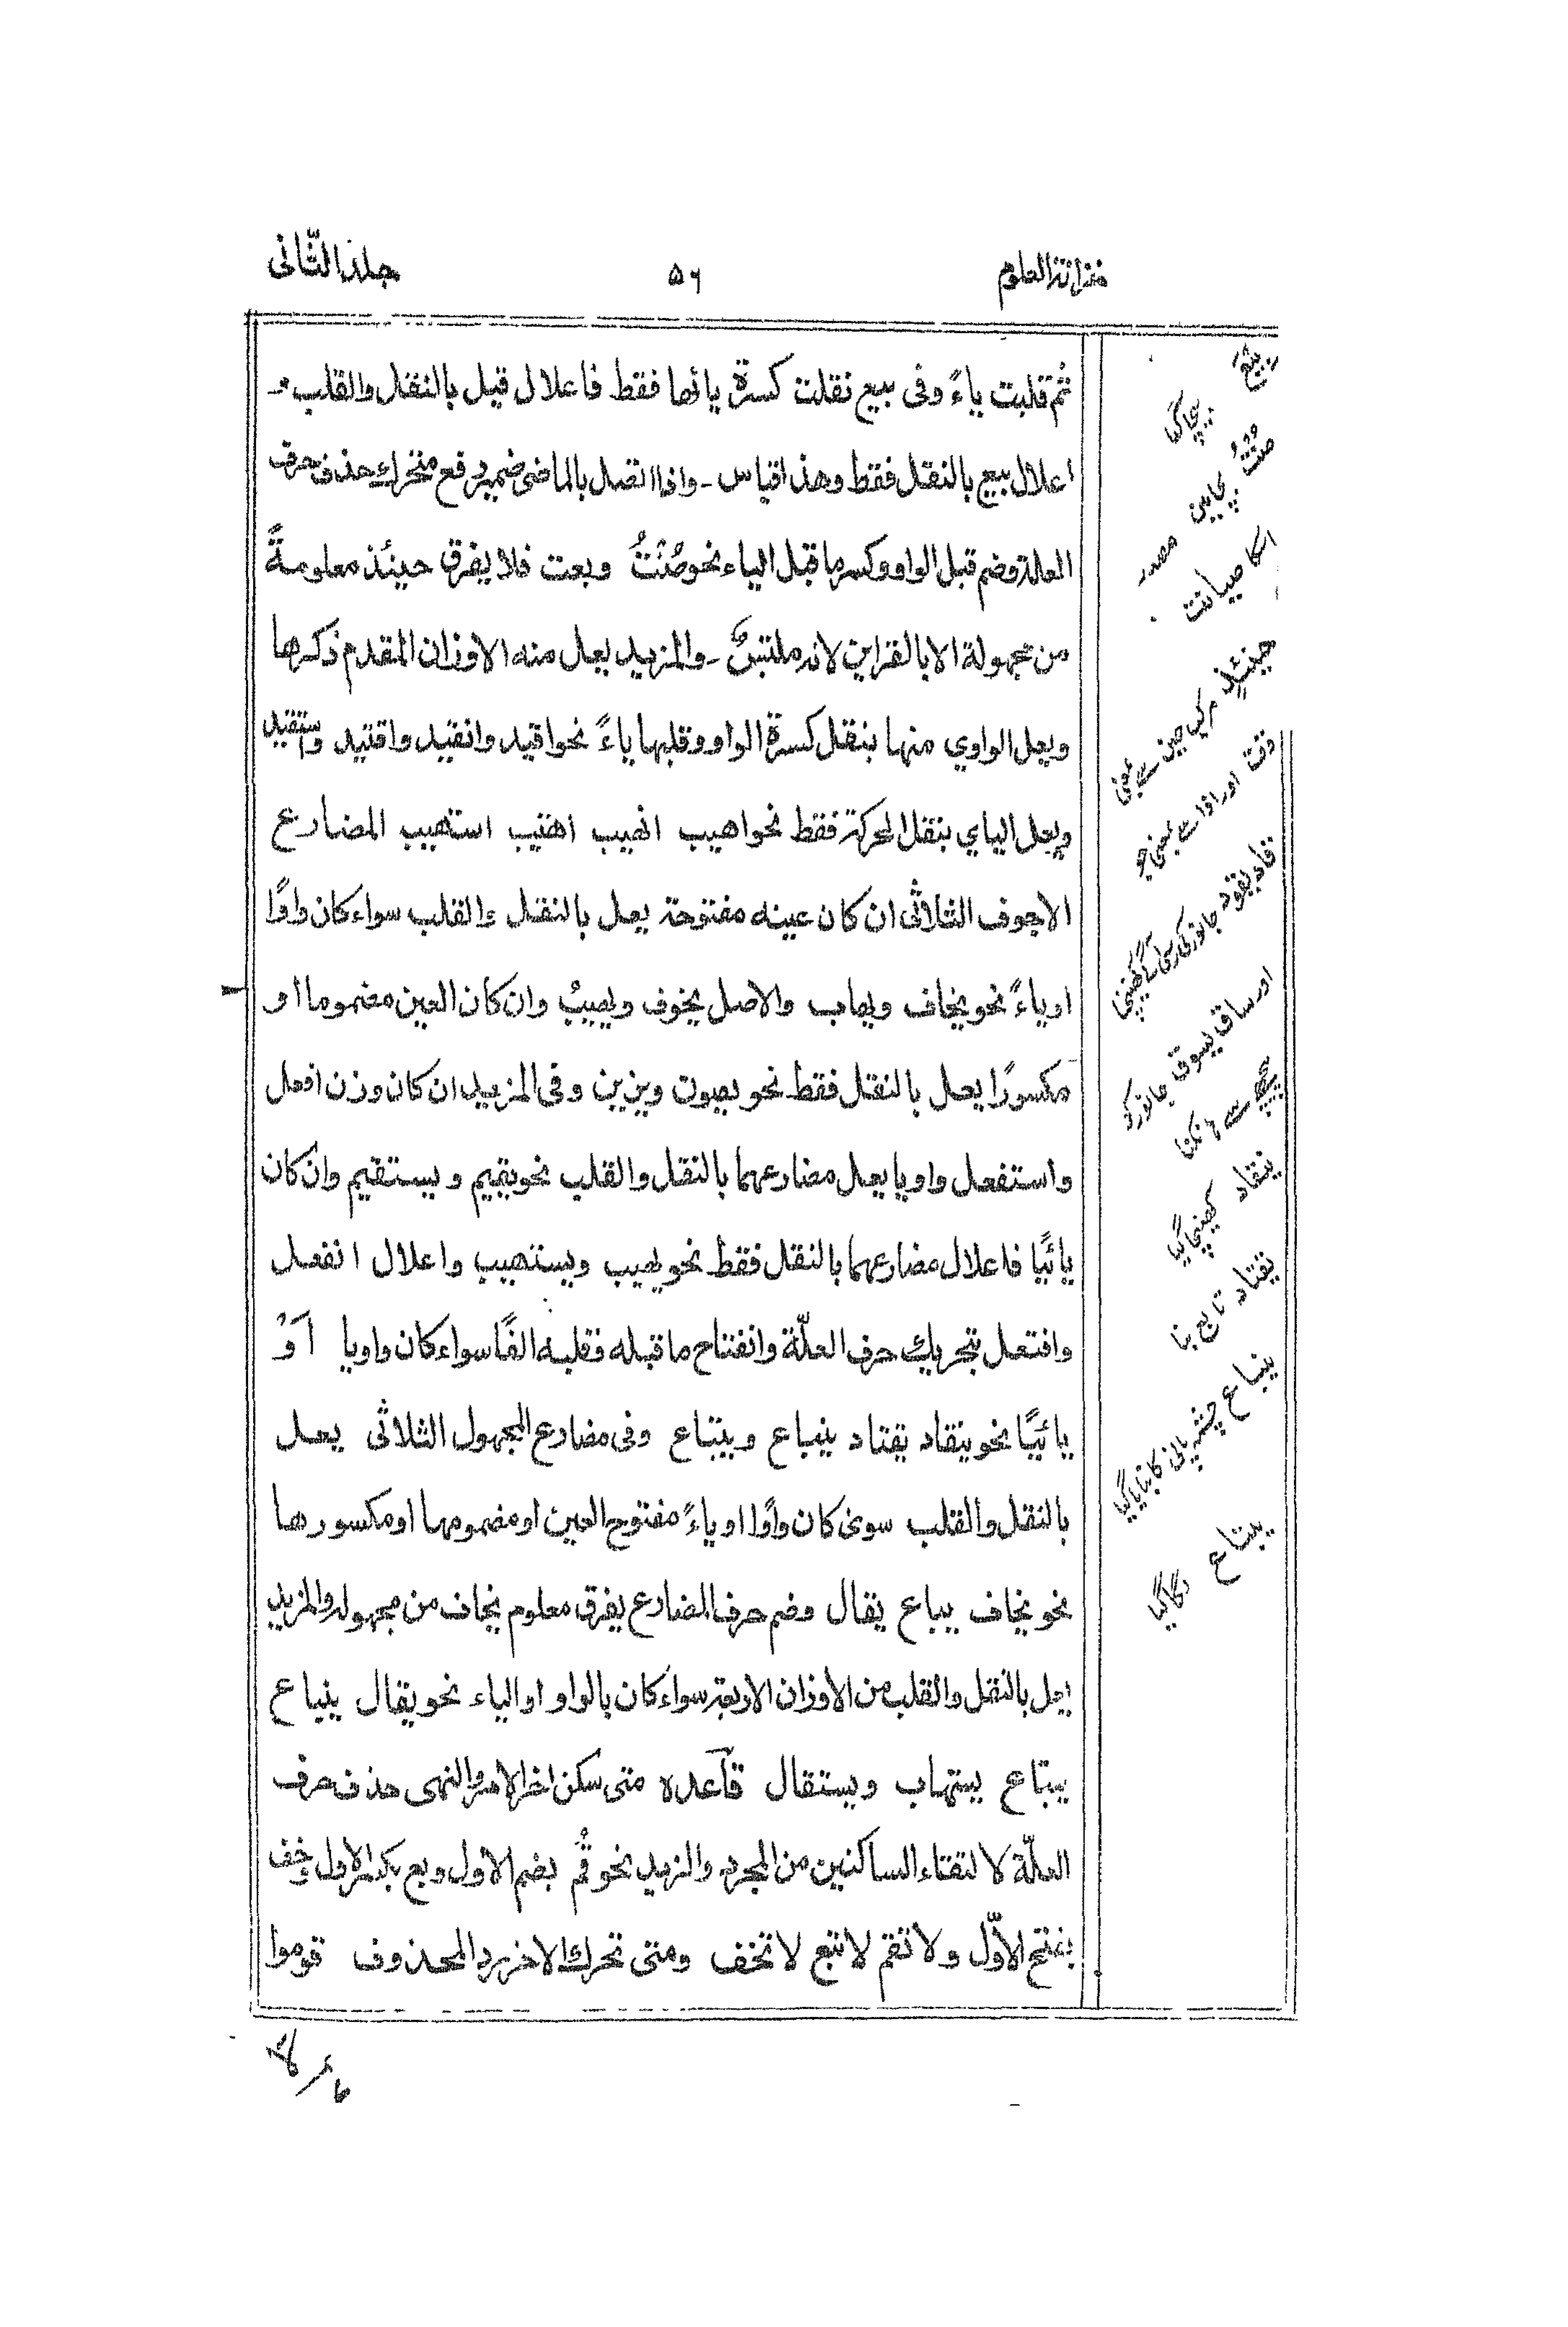 خزانة العلوم
۵۶
جلد الثّانی
ثم قلبت یاءً وفی بیع نقلت کسرة یائها فقط فاعلال قیل بالنقل والقلب و
اعلال بیع بالنقل فقط وهذا قیاس ـ واذا اتصل بالماضی ضمیر رفع متحرك حذف حرف
العلة وضم قبل الواو وکسر ما قبل الیاء نحو صُنْتُ وبعت فلا یفرق حینئذ معلومةً
من مجهولة الا بالقراین لانه ملتبسٌ ـ والمزید یعل منه الاوزان المقدم ذکرها
ویعل الواوي منها بنقل کسرة الواو وقلبها یاءً نحو اقید وانقید واقتید واستقید
ویعل الیاي بنقل الحرکة فقط نحو اهیب انهیب اهتیب استهیب المضارع
الاجوف الثلاثی ان کان عینه مفتوحة یعل بالنقل والقلب سواء کان واوًا
او یاءً نحو یخاف ویهاب والاصل یخوف ویهیبُ وان کان العین مضموما او
مکسورًا یعل بالنقل فقط نحو یصون ویزین وفی المزید ان کان وزن افعل
واستفعل واویا یعل مضارعهما بالنقل والقلب نحو یقیم ویستقیم وان کان
یائیًا فاعلال مضارعهما بالنقل فقط نحو یهیب ویستهیب واعلال انفعل
وافتعل بتحریك حرف العلّة وانفتاح ما قبله فقلبه الفًا سواء کان واویا اَوْ
یائیًا نحو ینقاد یقتاد ینباع ویبتاع وفی مضارع المجهول الثلاثی یعل
بالنقل والقلب سوی کان واوًا او یاءً مفتوح العین او مضمومها او مکسورها
نحو یخاف یباع یقال وضم حرف المضارع یفرق معلوم یخاف من مجهوله والمزید
یعل بالنقل والقلب من الاوزان الاربعة سواء کان بالواو او الیاء نحو یقال ینباع
یبتاع یستهاب ویستقال قاعده متی سکن اخر الامر والنهی حذف حرف
العلّة لالتقاء الساکنین من المجرد والمزید نحو قُم بضم الاول وبع بکسر الاول وخف
بفتح الاوّل ولا تقم لا تبع لا تخف ومتی تحرك الاخر یرد المحذوف قوموا
بیع
بیچا گیا
صنت
مصدر
اسکا صیانت
حینئذٍ مرکب حین سے بمعنی
وقت اور اذا سے بمعنی
قاد یقود جانور کی رسی آگے کھینچنا
اور ساق یسوق جانور کو
پیچھے سے ہانکنا
ینقاد کھینچا گیا
یقتاد تابع بنا
ینباع چشمہ پانی کا بنایا گیا
یبتاع